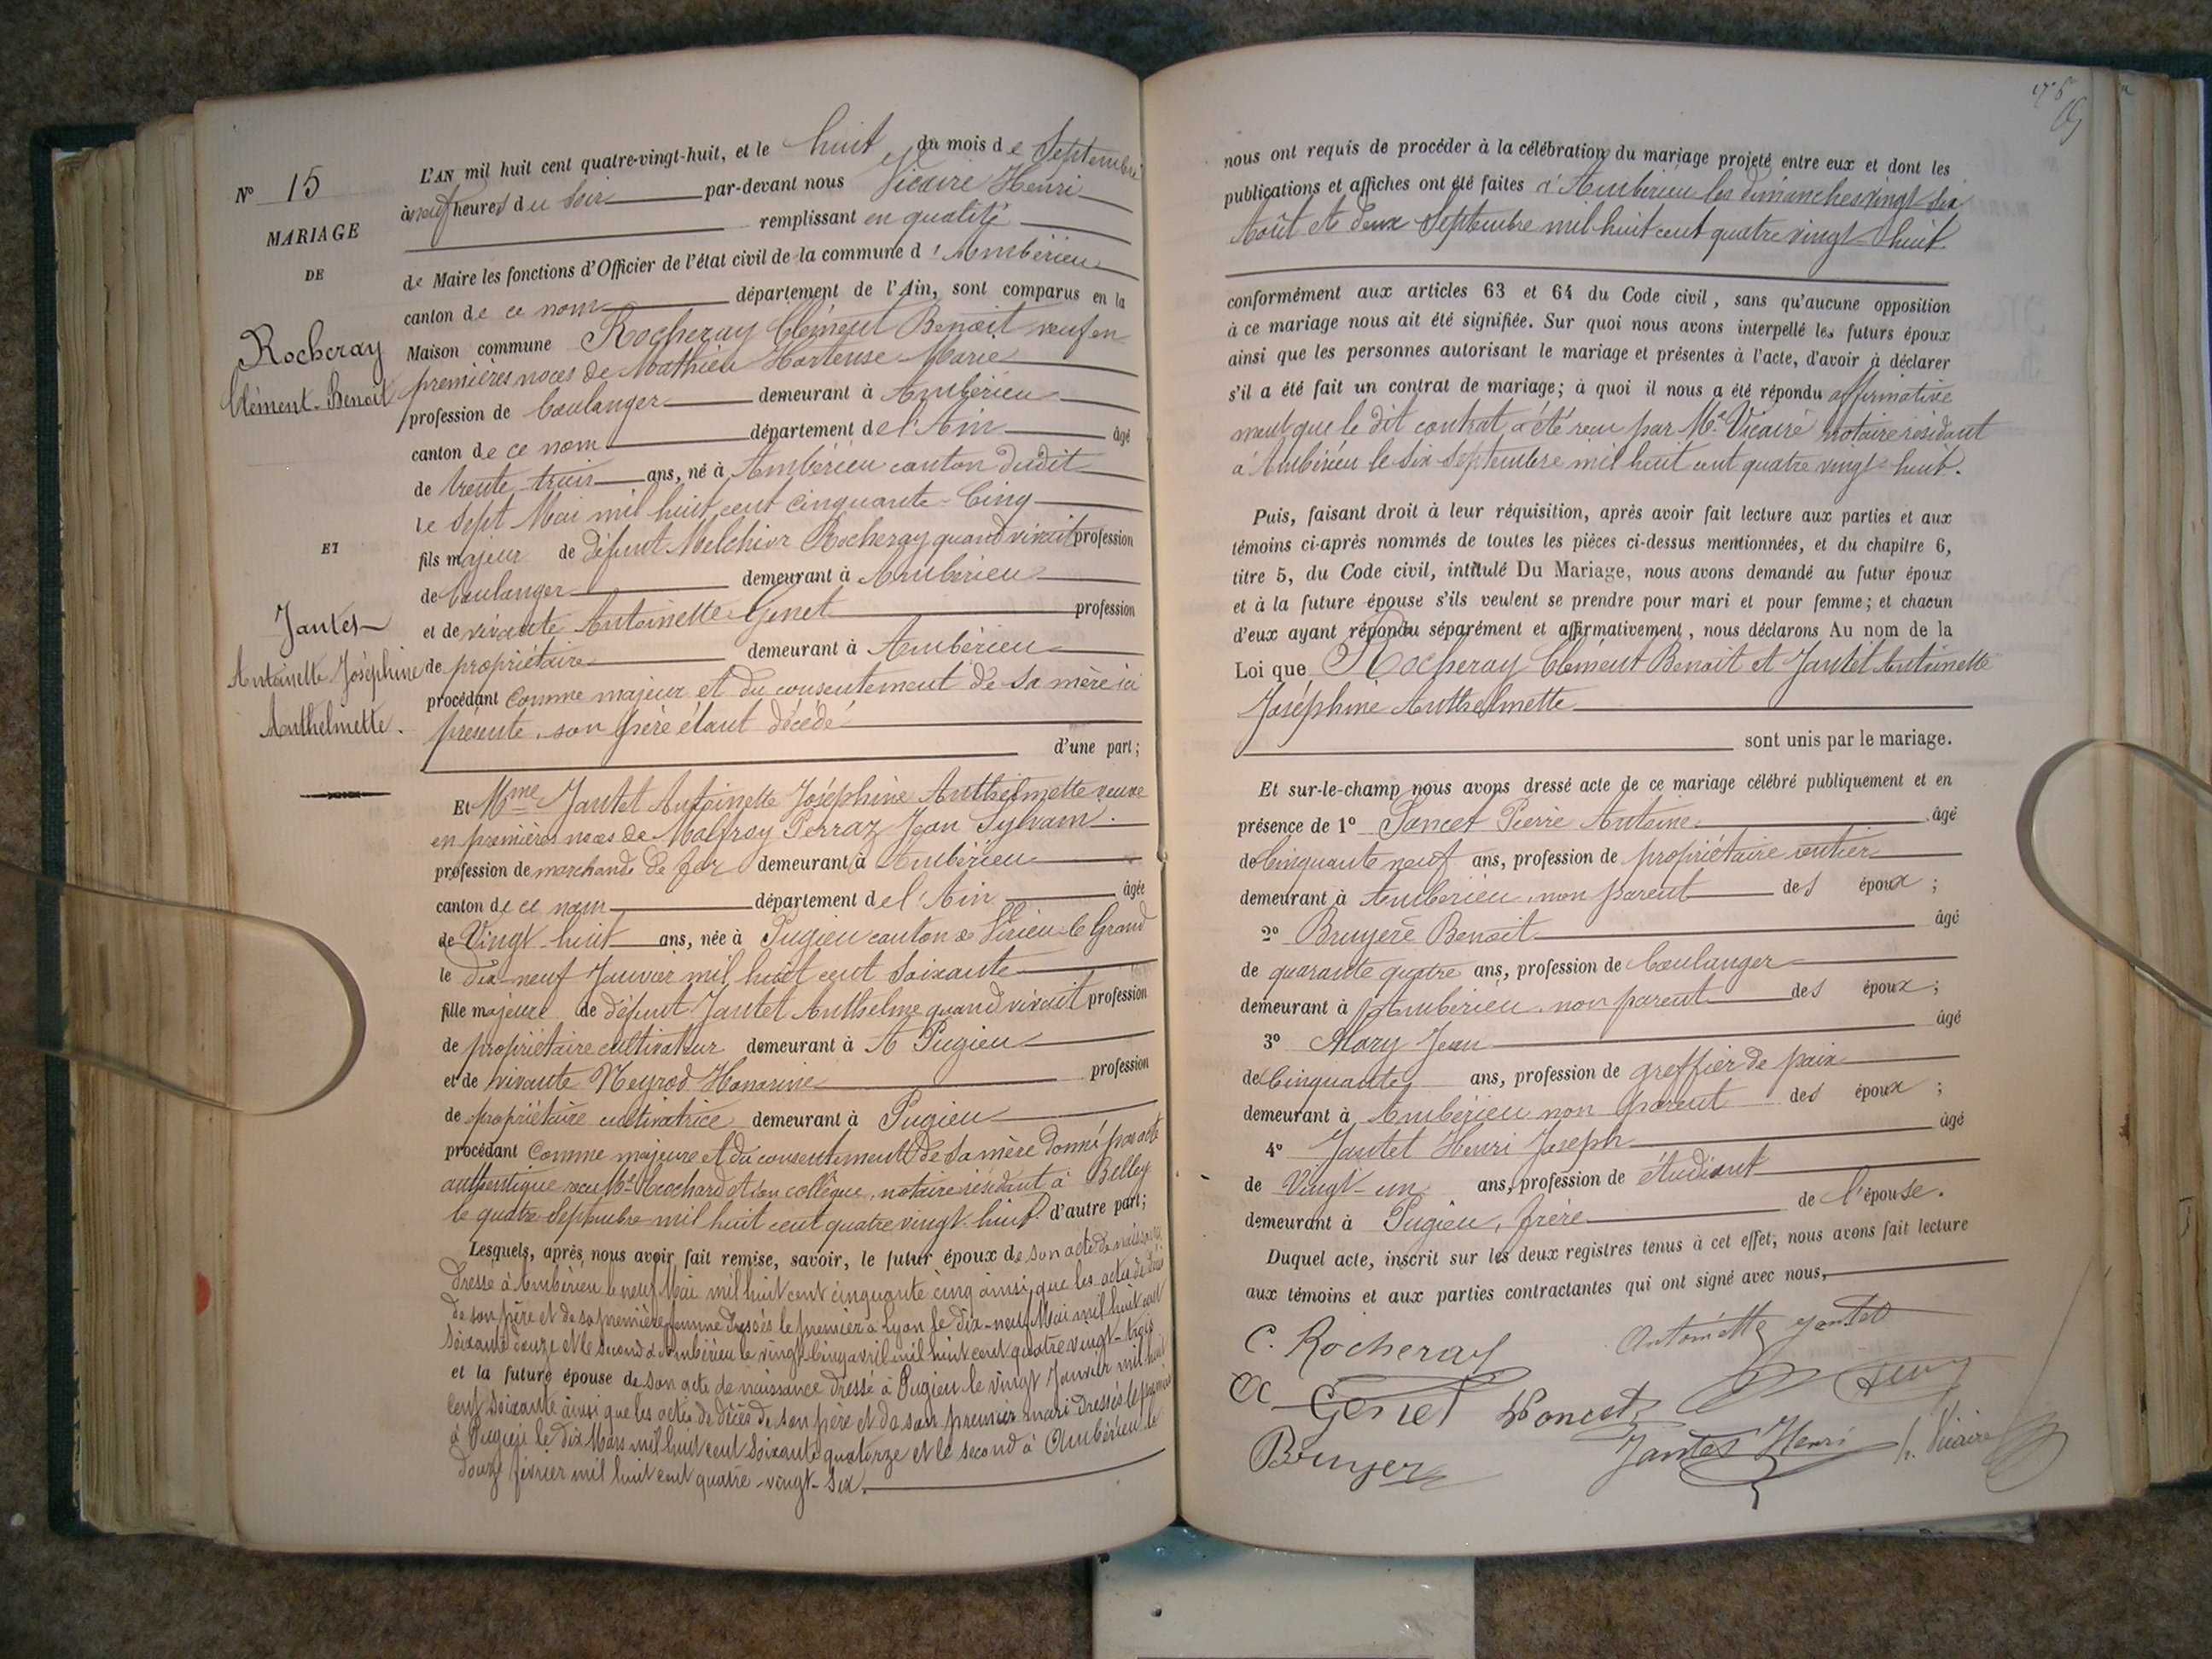 N° 15
MARIAGE
DE
Rocheray
Clément-Benoit
ET
Jantet
Antoinette Joséphine
Anthelmette.
L'AN mil huit cent quatre-vingt-huit, et le huit du mois de Septembre
à neuf heures du soir par-devant nous Vicaire Henri
remplissant en qualité
de Maire les fonctions d'Officier de l'état civil de la commune d'Ambérieu
canton de ce nom département de l'Ain, sont comparus en la
Maison commune Rocheray Clément Benoit veuf en
premières noces de Mathieu Hortense Marie
profession de boulanger demeurant à Ambérieu
canton de ce nom département de l'Ain âgé
de trente-trois ans, né à Ambérieu canton dudit
le Sept Mai mil huit cent cinquante-Cinq
fils majeur de défunt Melchior Rocheray quand vivait profession
de boulanger demeurant à Ambérieu
et de vivante Antoinette Genet profession
de propriétaire demeurant à Ambérieu
procédant comme majeur et du consentement de sa mère ici
présente, son père étant décédé
d'une part;
Et Mme Jantet Antoinette Joséphine Anthelmette veuve
en premières noces de Malfroy Perraz Jean Sylvain.
profession de marchande de fer demeurant à Ambérieu
canton de ce nom département de l'Ain âgée
de Vingt-huit ans, née à Pugieu canton de Virieu-le-Grand
le dix-neuf Janvier mil huit cent soixante
fille majeure de défunt Jantet Anthelme quand vivait profession
de propriétaire cultivateur demeurant à A Pugieu
et de vivante Neyrod Honorine profession
de propriétaire cultivatrice demeurant à Pugieu
procédant comme majeure et du consentement de sa mère donné par acte
authentique reçu Me Trochard et son collègue, notaire résidant à Belley
le quatre Septembre mil huit cent quatre vingt-huit. d'autre part;
Lesquels, après nous avoir fait remise, savoir, le futur époux de son acte de naissance
dressé à Ambérieu le neuf Mai mil huit cent cinquante cinq ainsi que les actes de décès
de son père et de sa première femme dressés le premier à Lyon le dix-neuf Mai mil huit cent
soixante douze et le second à Ambérieu le vingt-cinq avril mil huit cent quatre vingt-trois
et la future épouse de son acte de naissance dressé à Pugieu le vingt Janvier mil huit
cent soixante ainsi que les actes de décès de son père et de son premier mari dressés le premier
à Pugieu le dix Mars mil huit cent soixante quatorze et le second à Ambérieu le
douze février mil huit cent quatre-vingt-six.
nous ont requis de procéder à la célébration du mariage projeté entre eux et dont les
publications et affiches ont été faites à Ambérieu les dimanches vingt-six
Août et deux Septembre mil huit cent quatre vingt-huit
conformément aux articles 63 et 64 du Code civil, sans qu'aucune opposition
à ce mariage nous ait été signifiée. Sur quoi nous avons interpellé les futurs époux
ainsi que les personnes autorisant le mariage et présentes à l'acte, d'avoir à déclarer
s'il a été fait un contrat de mariage; à quoi il nous a été répondu affirmative
ment que le dit contrat a été reçu par Me Vicaire notaire résidant
à Ambérieu le six Septembre mil huit cent quatre vingt-huit.
Puis, faisant droit à leur réquisition, après avoir fait lecture aux parties et aux
témoins ci-après nommés de toutes les pièces ci-dessus mentionnées, et du chapitre 6,
titre 5, du Code civil, intitulé Du Mariage, nous avons demandé au futur époux
et à la future épouse s'ils veulent se prendre pour mari et pour femme; et chacun
d'eux ayant répondu séparément et affirmativement, nous déclarons Au nom de la
Loi que Rocheray Clément Benoit et Jantet Antoinette
Joséphine Anthelmette
sont unis par le mariage.
Et sur-le-champ nous avons dressé acte de ce mariage célébré publiquement et en
présence de 1° Poncet Pierre Antoine âgé
de Cinquante neuf ans, profession de propriétaire rentier
demeurant à Ambérieu, non parent des époux;
2° Bruyère Benoit âgé
de quarante quatre ans, profession de boulanger
demeurant à Ambérieu, non parent des époux;
3° Mary Jean âgé
de Cinquante ans, profession de greffier de paix
demeurant à Ambérieu non parent des époux;
4° Jantet Henri Joseph âgé
de Vingt-un ans, profession de étudiant
demeurant à Pugieu, frère de l'épouse.
Duquel acte, inscrit sur les deux registres tenus à cet effet, nous avons fait lecture
aux témoins et aux parties contractantes qui ont signé avec nous,
C. Rocheray Antoinette Jantet
Genet Poncet
Bruyer Jantet Henri h. Vicaire